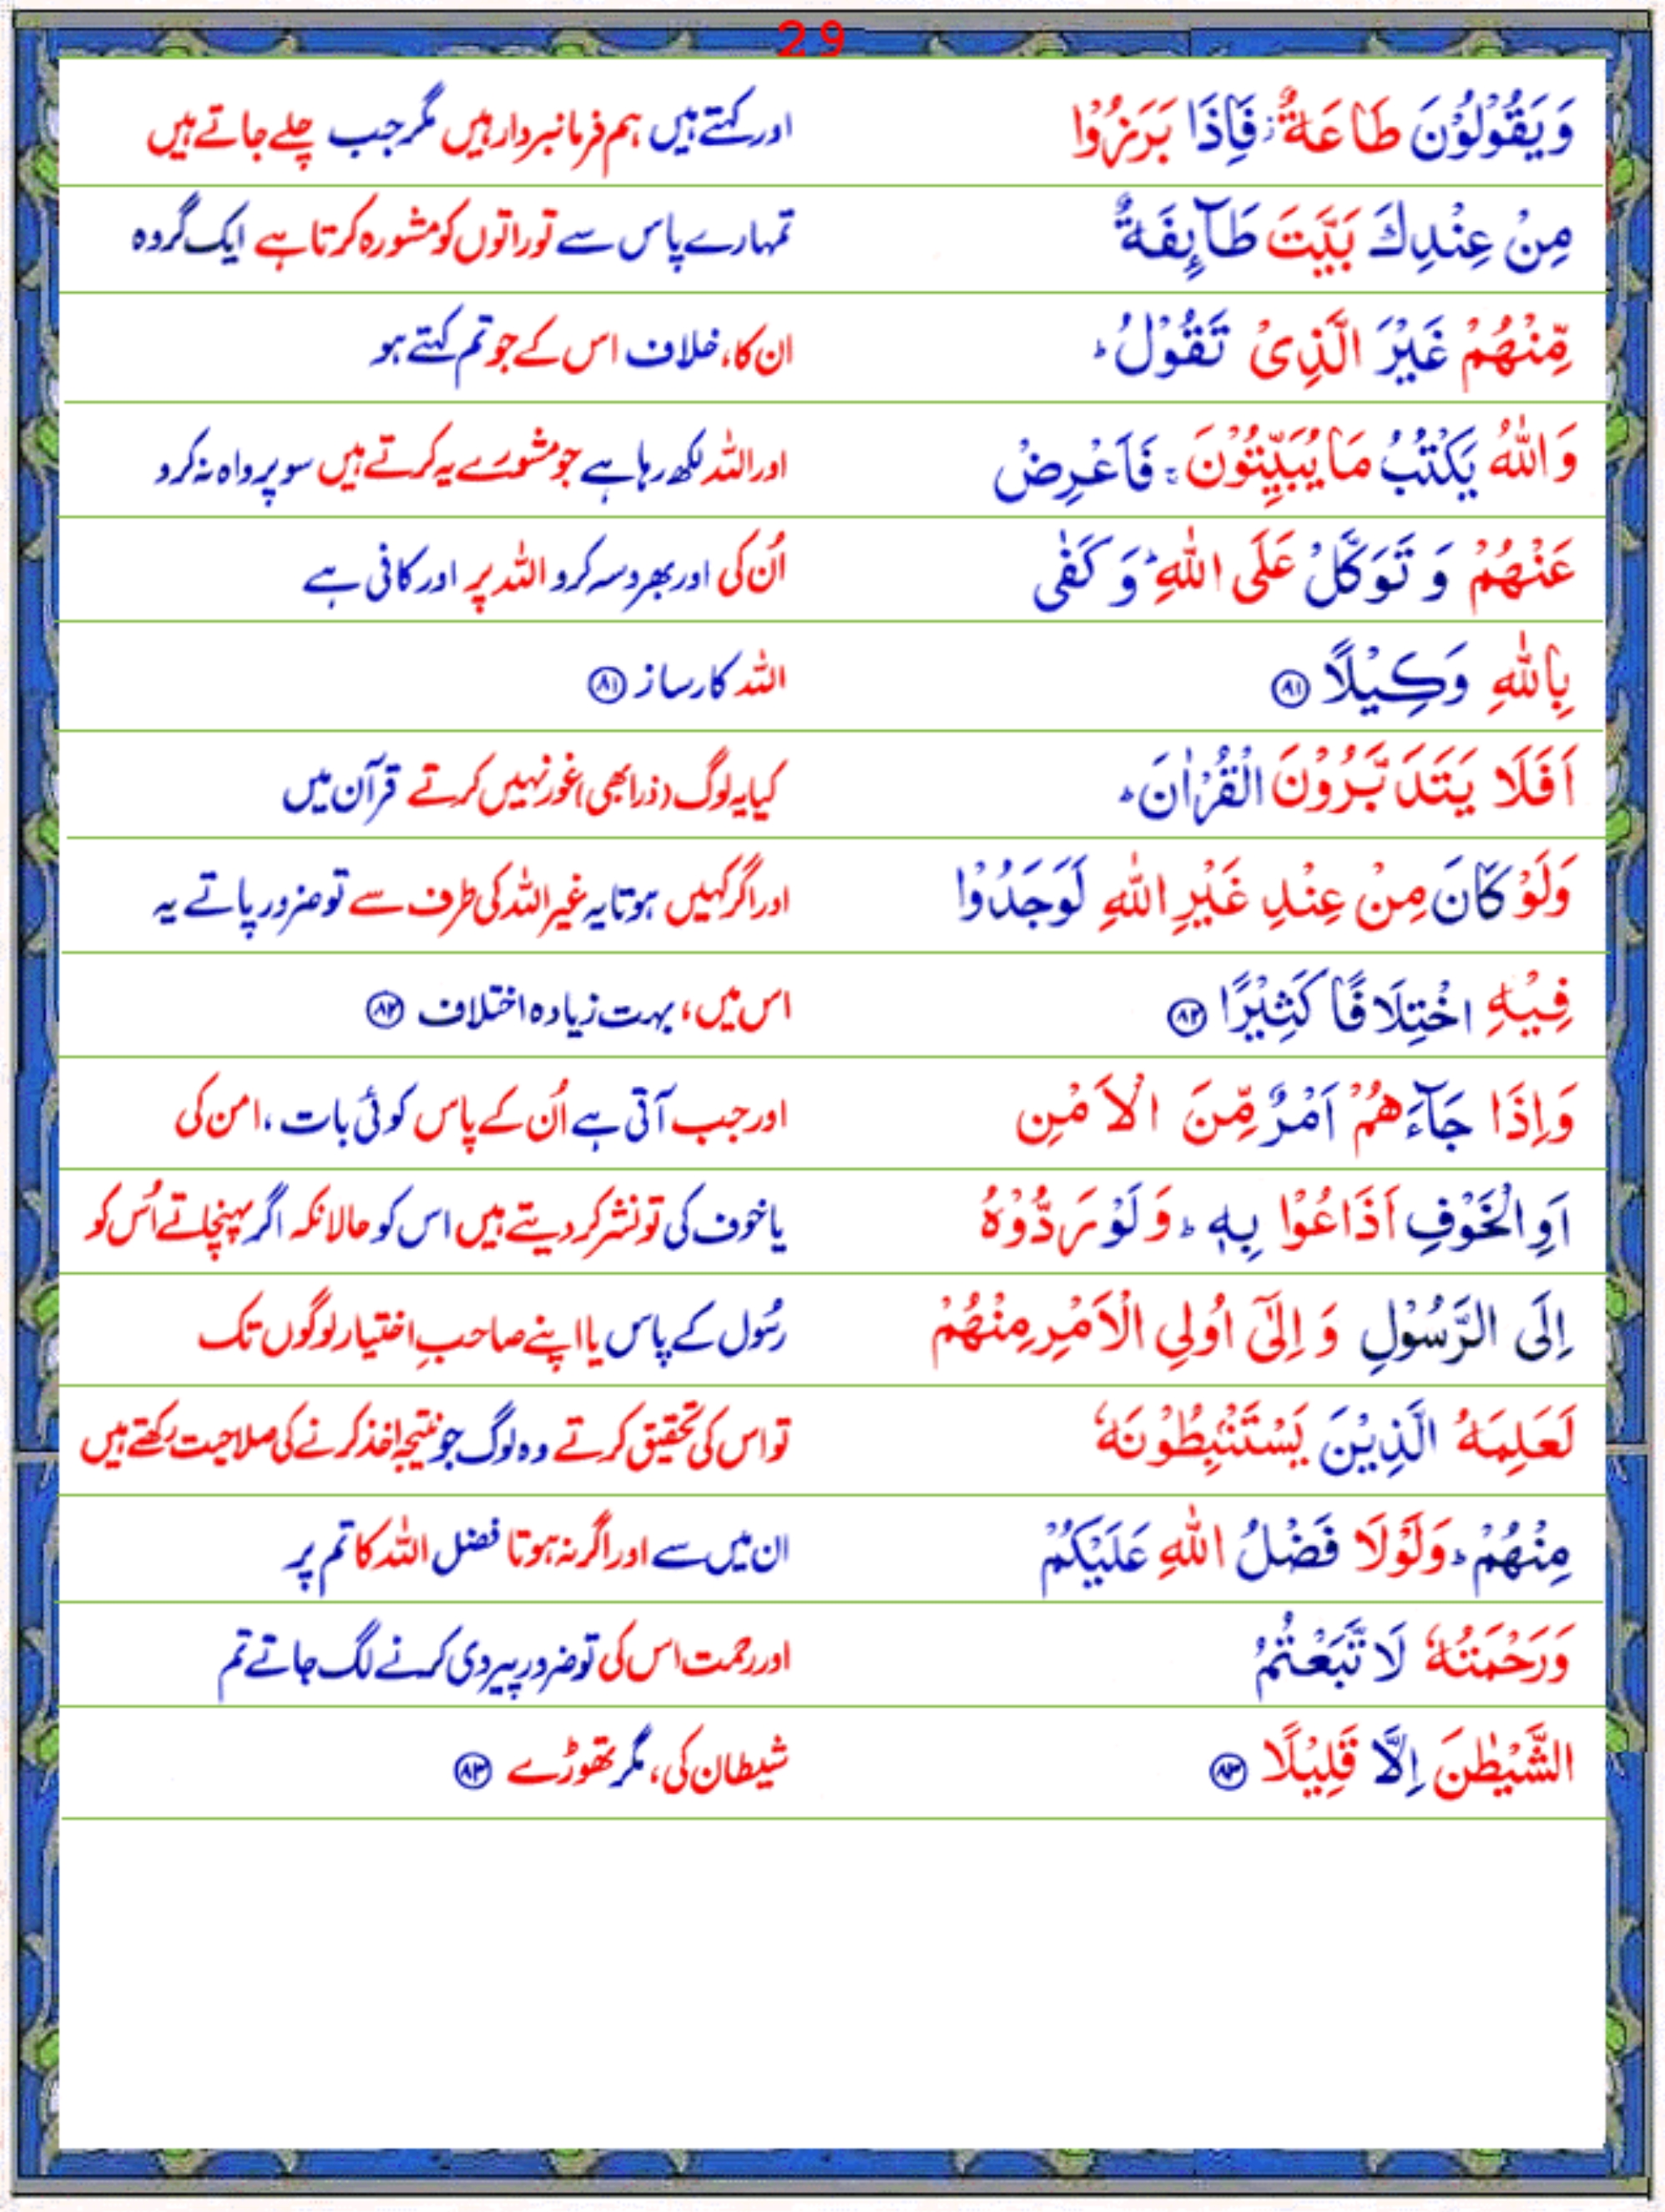 29
وَيَقُوْلُوْنَ طَاعَةٌ ز فَاِذَا بَرَزُوْا اور کہتے ہیں ہم فرمانبردار ہیں مگر جب چلے جاتے ہیں
مِنْ عِنْدِكَ بَيَّتَ طَآئِفَةٌ تمہارے پاس سے تو راتوں کو مشورہ کرتا ہے ایک گروہ
مِّنْهُمْ غَيْرَ الَّذِىْ تَقُوْلُ ؕ ان کا، خلاف اس کے جو تم کہتے ہو
وَاللّٰهُ يَكْتُبُ مَا يُبَيِّتُوْنَ ۚ فَاَعْرِضْ اور اللہ لکھ رہا ہے جو مشورے یہ کرتے ہیں سو پرواہ نہ کرو
عَنْهُمْ وَ تَوَكَّلْ عَلَى اللّٰهِ ؕ وَ كَفٰى اُن کی اور بھروسہ کرو اللہ پر اور کافی ہے
بِاللّٰهِ وَكِيْلًا ۸۱ اللہ کارساز ۸۱
اَفَلَا يَتَدَبَّرُوْنَ الْقُرْاٰنَ ؕ کیا یہ لوگ (ذرا بھی) غور نہیں کرتے قرآن میں
وَلَوْ كَانَ مِنْ عِنْدِ غَيْرِ اللّٰهِ لَوَجَدُوْا اور اگر کہیں ہوتا یہ غیر اللہ کی طرف سے تو ضرور پاتے یہ
فِيْهِ اخْتِلَافًا كَثِيْرًا ۸۲ اس میں، بہت زیادہ اختلاف ۸۲
وَاِذَا جَآءَهُمْ اَمْرٌ مِّنَ الْاَمْنِ اور جب آتی ہے اُن کے پاس کوئی بات، امن کی
اَوِ الْخَوْفِ اَذَاعُوْا بِهٖ ؕ وَلَوْ رَدُّوْهُ یا خوف کی تو نشر کر دیتے ہیں اس کو حالانکہ اگر پہنچاتے اُس کو
اِلَى الرَّسُوْلِ وَ اِلٰٓى اُولِى الْاَمْرِ مِنْهُمْ رسُول کے پاس یا اپنے صاحبِ اختیار لوگوں تک
لَعَلِمَهُ الَّذِيْنَ يَسْتَنْۢبِطُوْنَهٗ تو اس کی تحقیق کرتے وہ لوگ جو نتیجہ اخذ کرنے کی صلاحیت رکھتے ہیں
مِنْهُمْ ؕ وَلَوْلَا فَضْلُ اللّٰهِ عَلَيْكُمْ ان میں سے اور اگر نہ ہوتا فضل اللہ کا تم پر
وَرَحْمَتُهٗ لَاتَّبَعْتُمُ اور رحمت اس کی تو ضرور پیروی کرنے لگ جاتے تم
الشَّيْطٰنَ اِلَّا قَلِيْلًا ۸۳ شیطان کی، مگر تھوڑے ۸۳